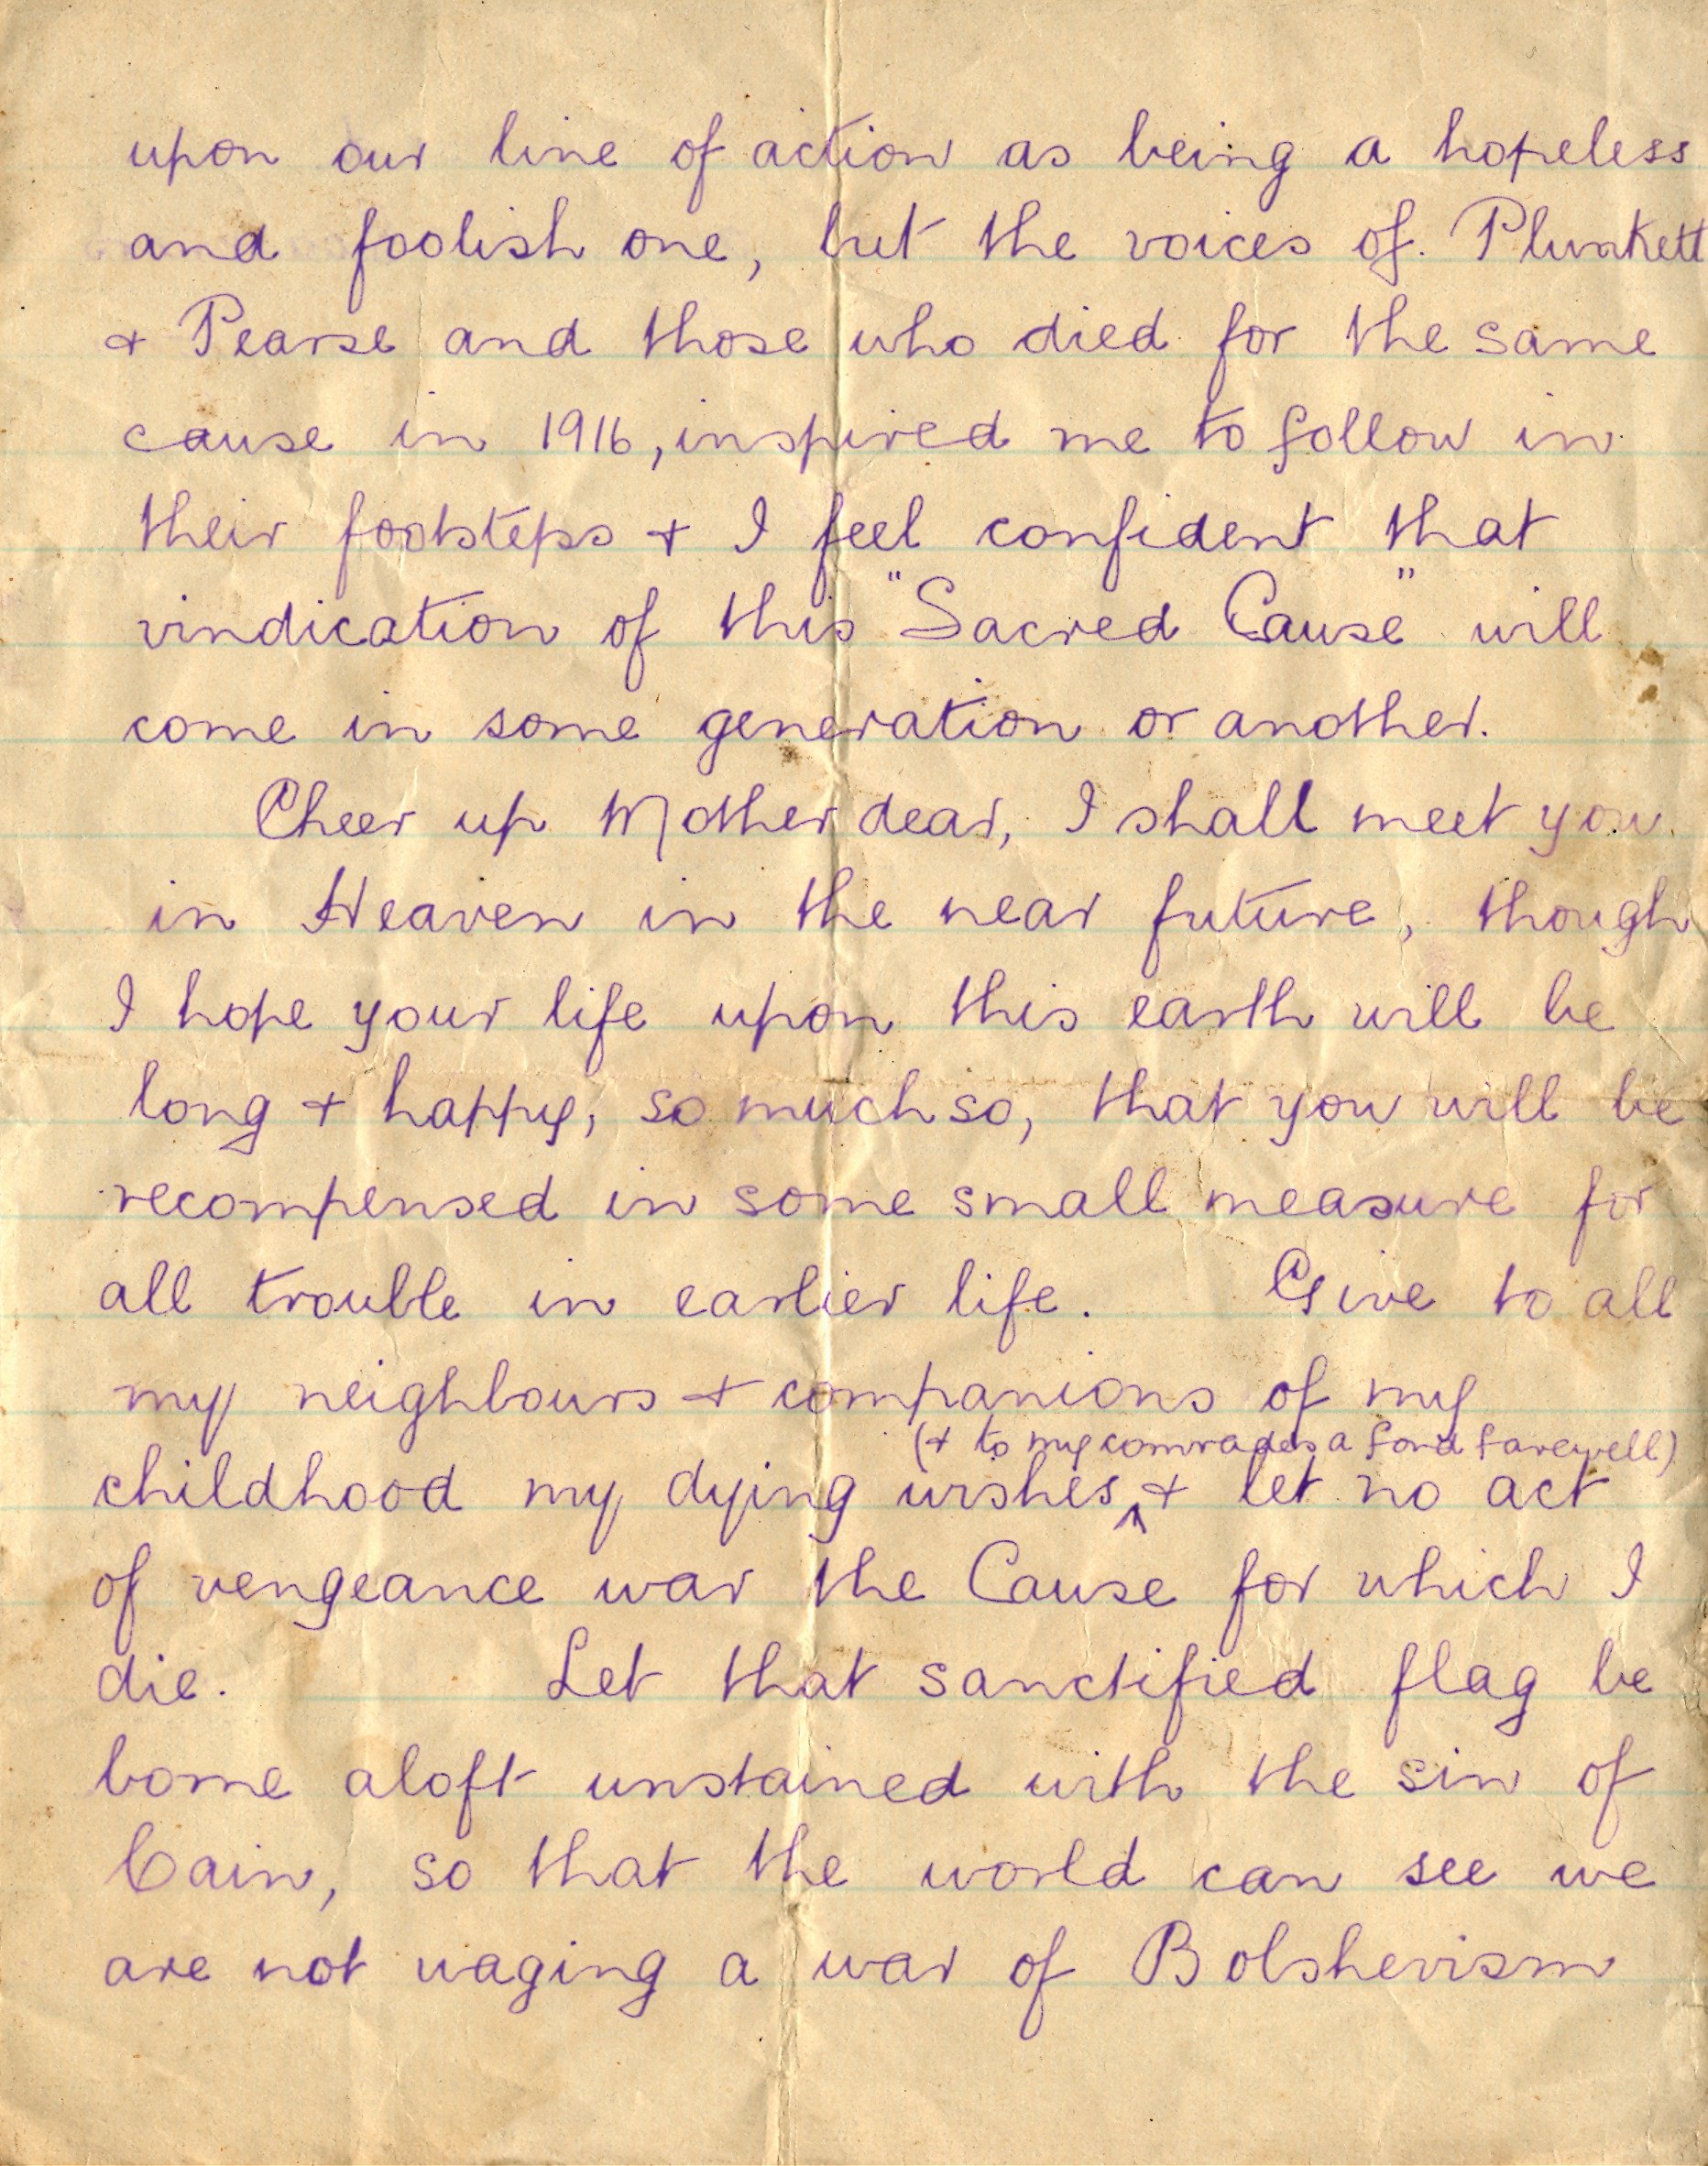 upon our line of action as being a hopeless
and foolish one, but the voices of. Plunkett
+ Pearse and those who died for the same
cause in 1916, inspired me to follow in
their footsteps + I feel confident that
vindication of this "Sacred Cause" will
come in some generation or another.
Cheer up Mother dear, I shall meet you
in Heaven in the near future, though
I hope your life upon this earth will be
long + happy, so much so, that you will be
recompensed in some small measure for
all trouble in earlier life. Give to all
my neighbours + companions of my
(+ to my comrades a fond farewell)
childhood my dying wishes ^ + let no act
of vengeance war the Cause for which I
die. Let that sanctified flag be
borne aloft unstained with the sin of
Cain, so that the world can see we
are not waging a war of Bolshevism